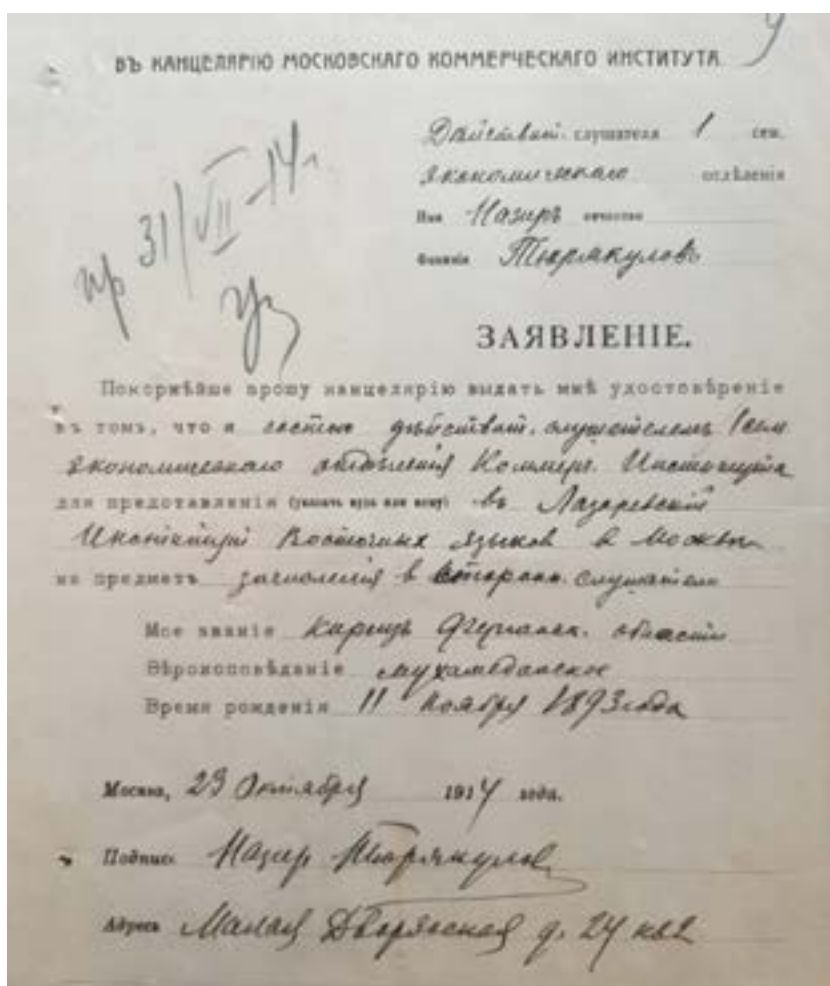 ВЪ КАНЦЕЛЯРІЮ МОСКОВСКАГО КОММЕРЧЕСКАГО ИНСТИТУТА
Действит. слушателя 1 сем.
Экономическаго отдѣленія
Имя Назиръ отчество
Фамилія Тюрякуловъ
31/VII-14 г.
ЗАЯВЛЕНІЕ.
Покорнѣйше прошу канцелярію выдать мнѣ удостовѣреніе
въ томъ, что я состою дѣйствит. слушателемъ 1 сем
Экономическаго отдѣленія Коммерч. Института
для предоставленія (указать куда или кому) въ Лазаревскій
Институт Восточных языков в Москве
на предметъ зачисления в сторонн. слушатели
Мое званіе киргизъ Ферганск. области
Вѣроисповѣданіе мухамеданское
Время рожденія 11 ноября 1893 года
Москва, 23 Октября 1914 года.
Подпись Назир Тюрякулов
Адресъ Малая Дворянская д. 24 кв 2